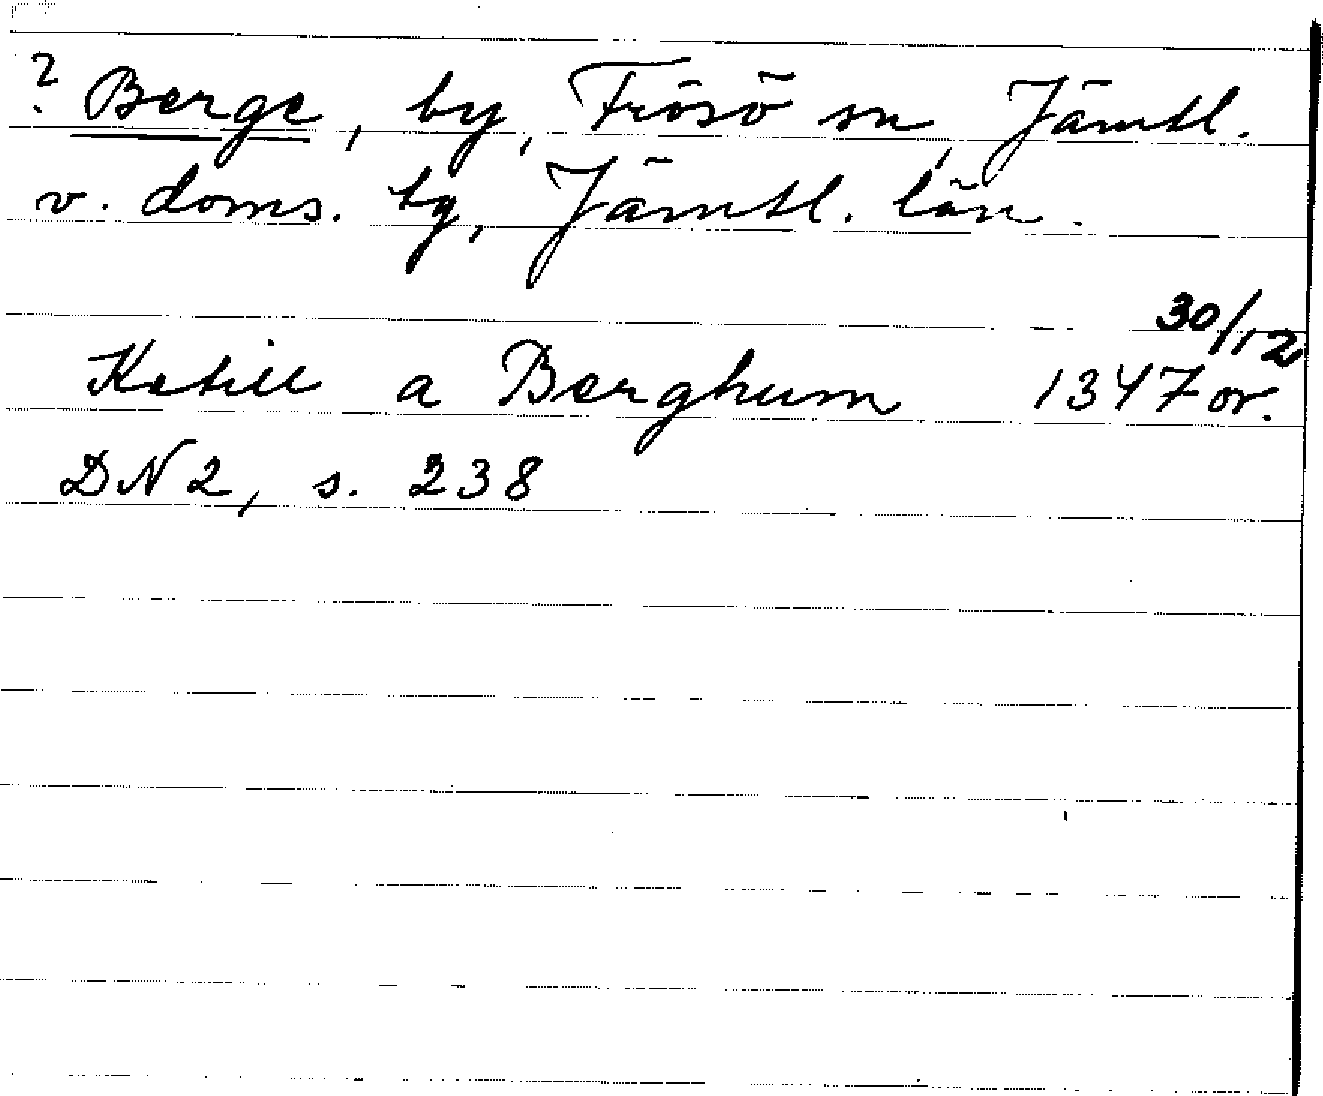 ? Berge, by, Frösö sn, Jämtl.
v. doms. tg, Jämtl. län.
Ketill a Berghum 1347 or. 30/12
DN 2, s. 238